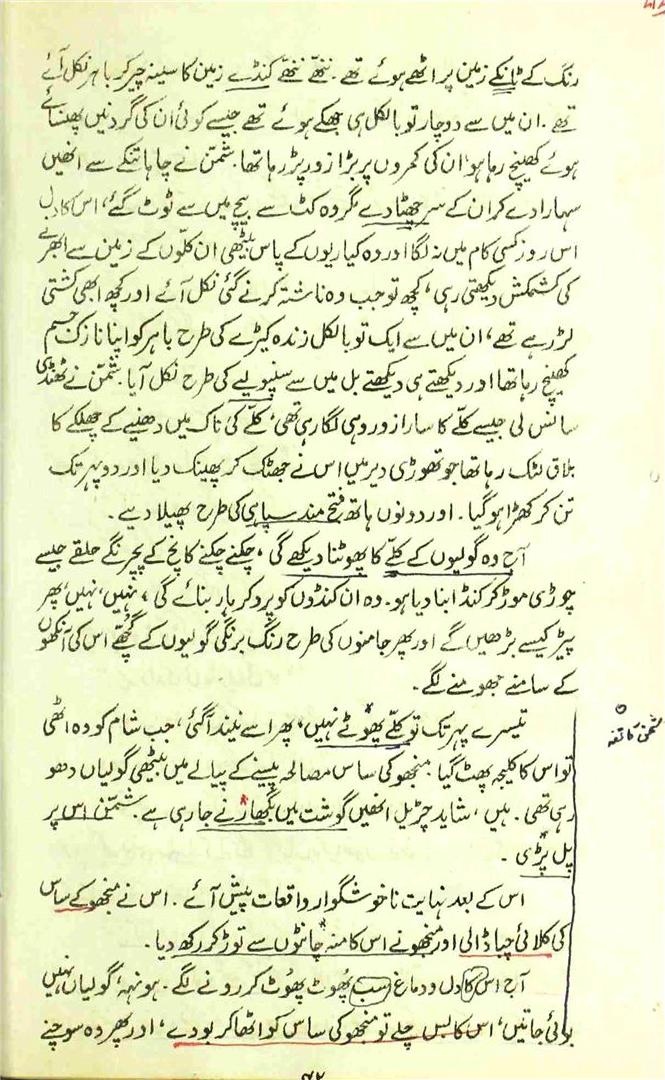 رنگ کے ٹانکے زمین پر اٹھے ہوئے تھے۔ ننھے ننھے کنڈے زمین کا سینہ چیر کر باہر نکل آئے
تھے۔ ان میں سے دو چار تو بالکل ہی جھکے ہوئے تھے جیسے کوئی ان کی گردنیں پھنسائے
ہوئے کھینچ رہا ہو، ان کی کمروں پر بڑا زور پڑ رہا تھا۔ شمّن نے چاہا تنکے سے انھیں
سہارا دے کر ان کے سر جھٹا دے مگر وہ کٹ سے بیچ میں سے ٹوٹ گئے، اس کا دل
اس روز کسی کام میں نہ لگا اور وہ کیاریوں کے پاس بیٹھی ان کلّوں کے زمین سے ابھرنے
کی کشمکش دیکھتی رہی، کچھ تو جب وہ ناشتہ کرنے گئی نکل آئے اور کچھ ابھی کشتی
لڑ رہے تھے، ان میں سے ایک تو بالکل زندہ کیڑے کی طرح باہر کو اپنا نازک جسم
کھینچ رہا تھا اور دیکھتے ہی دیکھتے بل میں سے سنپولیے کی طرح نکل آیا۔ شمّن نے ٹھنڈی
سانس لی جیسے کلّے کا سارا زور وہی لگا رہی تھی، کلّے کی ناک میں دھنیے کے چھلکے کا
بلاق لٹک رہا تھا جو تھوڑی دیر میں اس نے جھٹک کر پھینک دیا اور دوپہر تک
تن کر کھڑا ہو گیا۔ اور دونوں ہاتھ فتح مند سپاہی کی طرح پھیلا دیے۔
آج وہ گولیوں کے کلّے کا پھوٹنا دیکھے گی، چکنے چکنے کانچ کے پچرنگے حلقے جیسے
چوڑی موڑ کر کنڈا بنا دیا ہو۔ وہ ان کنڈوں کو پرو کر ہار بنائے گی، نہیں، نہیں، پھر
پیڑ کیسے بڑھیں گے اور پھر جامنوں کی طرح رنگ برنگی گولیوں کے گچھے اس کی آنکھوں
کے سامنے جھومنے لگے۔
تیسرے پہر تک تو کلّے پھوٹے نہیں، پھر اسے نیند آ گئی، جب شام کو وہ اٹھی
تو اس کا کلیجہ پھٹ گیا۔ منجھو کی ساس مصالحہ پیسنے کے پیالے میں بیٹھی گولیاں دھو
رہی تھی۔ ہیں، شاید چڑیل انھیں گوشت میں بگھارنے جا رہی ہے۔ شمّن اس پر
پل پڑی۔
اس کے بعد نہایت ناخوشگوار واقعات پیش آئے۔ اس نے منجھو کے ساس
کی کلائی چبا ڈالی اور منجھو نے اس کا منہ چانٹوں سے توڑ کر رکھ دیا۔
آج اس کا دل و دماغ سب پھُوٹ پھُوٹ کر رونے لگے۔ ہونہہ، گولیاں نہیں
بوئی جاتیں، اس کا بس چلے تو منجھو کی ساس کو اٹھا کر بو دے، اور پھر وہ سوچنے